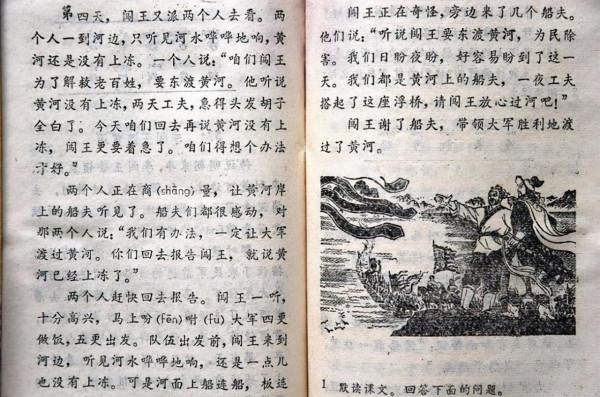 第四天，闯王又派两个人去看。两
个人一到河边，只听见河水哗哗地响，黄
河还是没有上冻。一个人说：“咱们闯王
为了解救老百姓，要东渡黄河。他听说
黄河没有上冻，两天工夫，急得头发胡子
全白了。今天咱们回去再说黄河没有上
冻，闯王更要着急了。咱们得想个办法
才好。”
两个人正在商(shāng)量，让黄河岸
上的船夫听见了。船夫们都很感动，对
那两个人说：“我们有办法，一定让大军
渡过黄河。你们回去报告闯王，就说黄
河已经上冻了。”
两个人赶快回去报告。闯王一听，
十分高兴，马上吩(fēn)咐(fù)大军四更
做饭，五更出发。队伍出发前，闯王来到
河边，听见河水哗哗地响，还是一点儿
也没有上冻。可是河面上船连船，板连
闯王正在奇怪，旁边来了几个船夫。
他们说：“听说闯王要东渡黄河，为民除
害。我们日盼夜盼，好容易盼到了这一
天。我们都是黄河上的船夫，一夜工夫
搭起了这座浮桥，请闯王放心过河吧！”
闯王谢了船夫，带领大军胜利地渡
过了黄河。
1 默读课文。回答下面的问题。